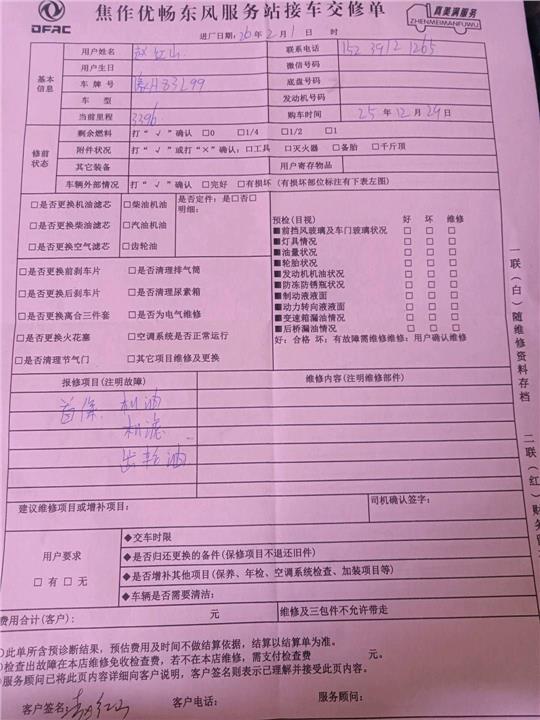 DFAC
焦作优畅东风服务站接车交修单
真美满服务
ZHENMEIMANFUWU
进厂日期:26年2月1日 时
基本信息
用户姓名
联系电话 152 3912 1265
用户生日
微信号码
车牌号 豫H83299
底盘号码
车型
发动机号码
当前里程 3396
购车时间 25年12月29日
修前状态
剩余燃料 打"√"确认 □0 □1/4 □1/2 □1
附件状况 打"√"或打"×"确认:□工具 □灭火器 □备胎 □千斤顶
其它装备
用户寄存物品
车辆外部情况 打"√"确认 □完好 □有损坏(有损坏部位标注有下表左图)
□是否更换机油滤芯 □柴油机油 是否定件:是□否□
明细:
□是否更换柴油滤芯 □汽油机油
□是否更换空气滤芯 □齿轮油
□是否更换前刹车片 □是否清理排气筒
□是否更换后刹车片 □是否清理尿素箱
□是否更换离合三件套 □是否为电气维修
□是否更换火花塞 □空调系统是否正常运行
□是否清理节气门 □其它项目维修及更换
预检(目视) 好 坏 维修
■前挡风玻璃及车门玻璃状况 □ □ □
■灯具情况 □ □ □
■油量状况 □ □ □
■轮胎状况 □ □ □
■发动机机油状况 □ □ □
■防冻防锈瓶状况 □ □ □
■制动液液面 □ □ □
■动力转向液液面 □ □ □
■变速箱漏油情况 □ □ □
■后桥漏油情况 □ □ □
好:合格 坏:有故障需维修维修:用户确认维修
报修项目(注明故障)
维修内容(注明维修部件)
首保 机油
机滤
齿轮油
建议维修项目或增补项目:
司机确认签字:
用户要求
□有□无
◆交车时限
◆是否归还更换的备件(保修项目不退还旧件)
◆是否增补其他项目(保养、年检、空调系统检查、加装项目等)
◆车辆是否需要清洁:
费用合计(客户): 元
维修及三包件不允许带走
)此单所含预诊断结果,预估费用及时间不做结算依据,结算以结算单为准。
)检查出故障在本店维修免收检查费,若不在本店维修,需支付检查费 元。
)服务顾问已将此页内容详细向客户说明,客户签名则表示已理解并接受此页内容。
客户签名:
客户电话:
服务顾问:
一联(白)随维修资料存档
二联(红)财务